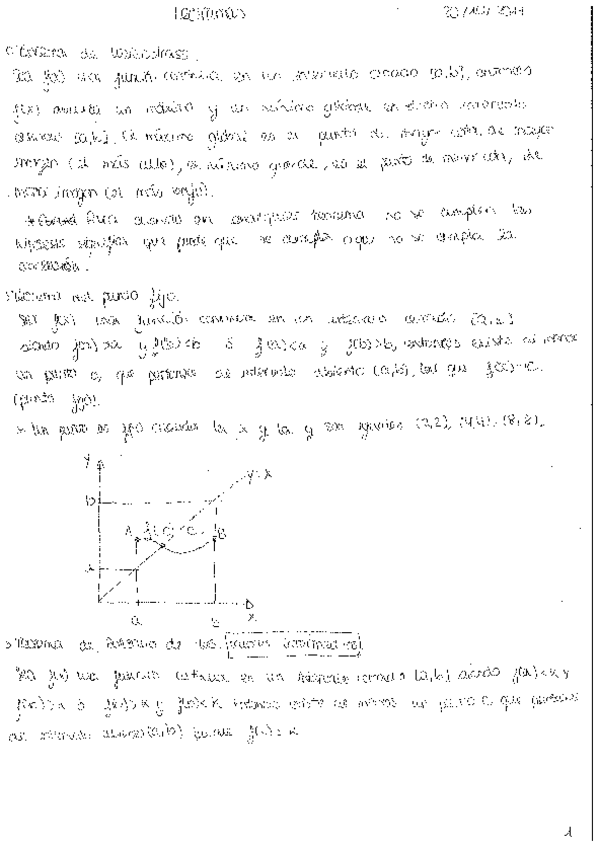 TEOREMAS
Teorema de Weierstrass.
Sea f(x) una función continua en un intervalo cerrado [a,b], entonces
f(x) un máximo y un mínimo global en dicho intervalo
cerrado [a,b]. El máximo global es el punto de mayor
imagen (el más alto), el mínimo global, es el punto de de
menor imagen (el más bajo).
cuando en cualquier teorema no se cumplen las
hipótesis significa que puede que se cumpla o que no se cumpla la
Teorema del punto fijo.
Sea f(x) una función continua en un intervalo cerrado [a,b]
siendo f(a)>a y f(b)<b ó f(a)<a y f(b)>b, entonces existe al menos
un punto c, que pertenece al intervalo abierto (a,b), tal que f(c)=c.
(punto fijo).
* Un punto es fijo cuando la x y la y son iguales (2,2), (4,4), (8,8).
y
y=x
b
A f(c)=c B
a
a b x
Teorema de de los valores intermedios
Sea f(x) una función continua en un intervalo cerrado [a,b] siendo f(a)<k y
f(b)>k ó f(a)>k y f(b)<k entonces existe al menos un punto c que pertenece
al intervalo abierto (a,b) f(c)=k
1